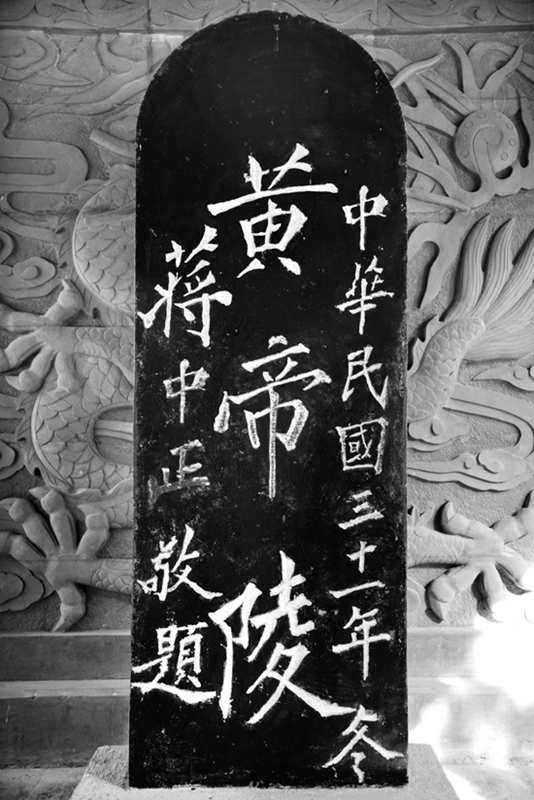 中華民國三十一年冬
黃帝陵
蔣中正敬題